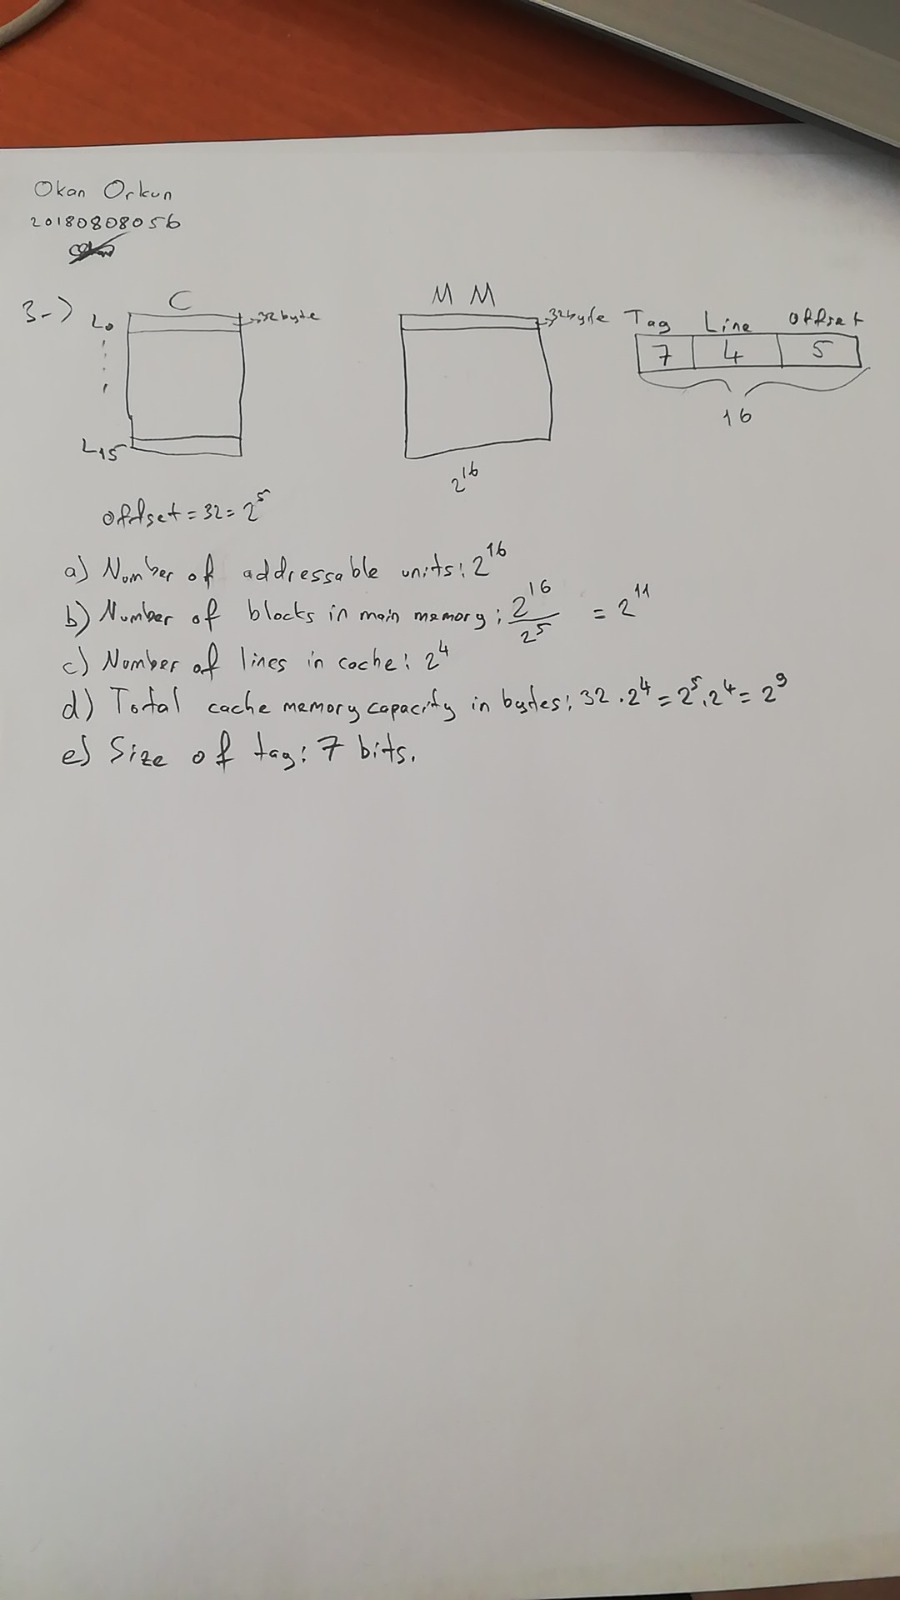 Okan Orkun
20180808056
3-)
C
L0
L15
→32 byte
M M
→32 byte
2^16
Tag Line offset
7 4 5
16
offset = 32 = 2^5
a) Number of addressable units: 2^16
b) Number of blocks in main memory: 2^16/2^5 = 2^11
c) Number of lines in cache: 2^4
d) Total cache memory capacity in bytes: 32 . 2^4 = 2^5 . 2^4 = 2^9
e) Size of tag: 7 bits.